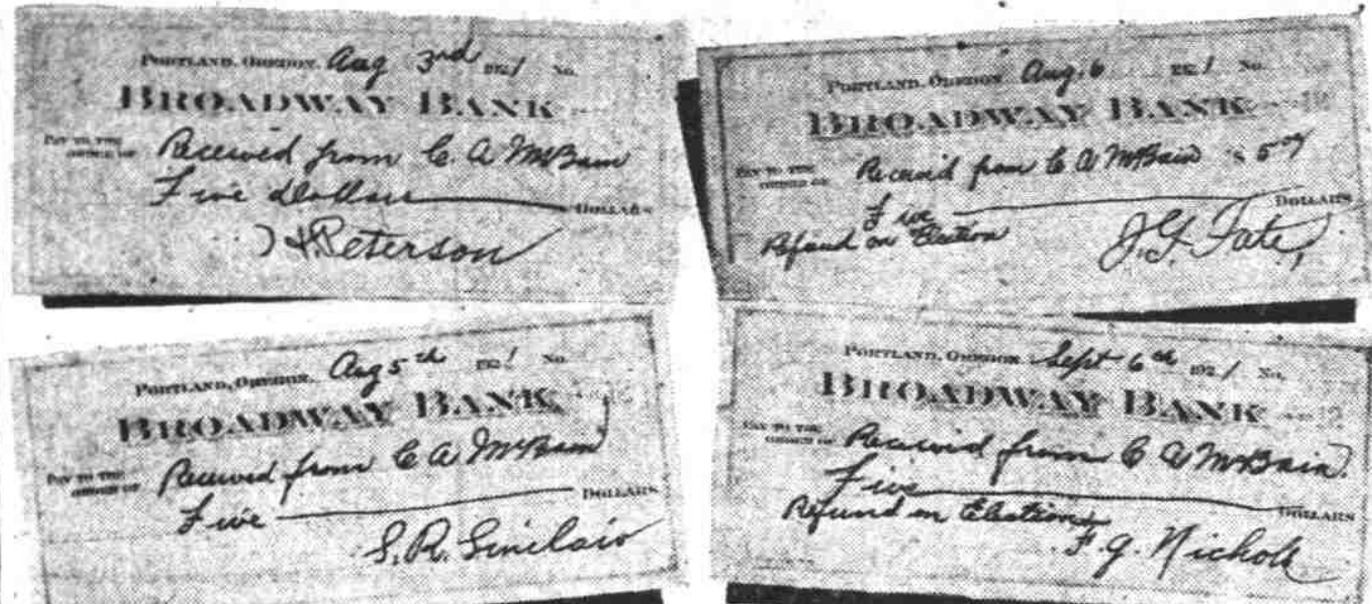 PORTLAND, OREGON, Aug 3rd 1921 No.
BROADWAY BANK
PAY TO THE ORDER OF Received from C. A McBain
Five dollars DOLLARS
Peterson
PORTLAND, OREGON, Aug. 6 1921 No.
BROADWAY BANK
PAY TO THE ORDER OF Received from C A McBain $ 5
Five DOLLARS
Refund on Election J.G. Tate,
PORTLAND, OREGON, Aug 5th 1921 No.
BROADWAY BANK
PAY TO THE ORDER OF Received from C A McBain
Five DOLLARS
S. R. Sinclair
PORTLAND, OREGON Sept 6th 1921 No.
BROADWAY BANK
PAY TO THE ORDER OF Received from C A McBain.
Five DOLLARS
Refund on Election
F. G. Nichols